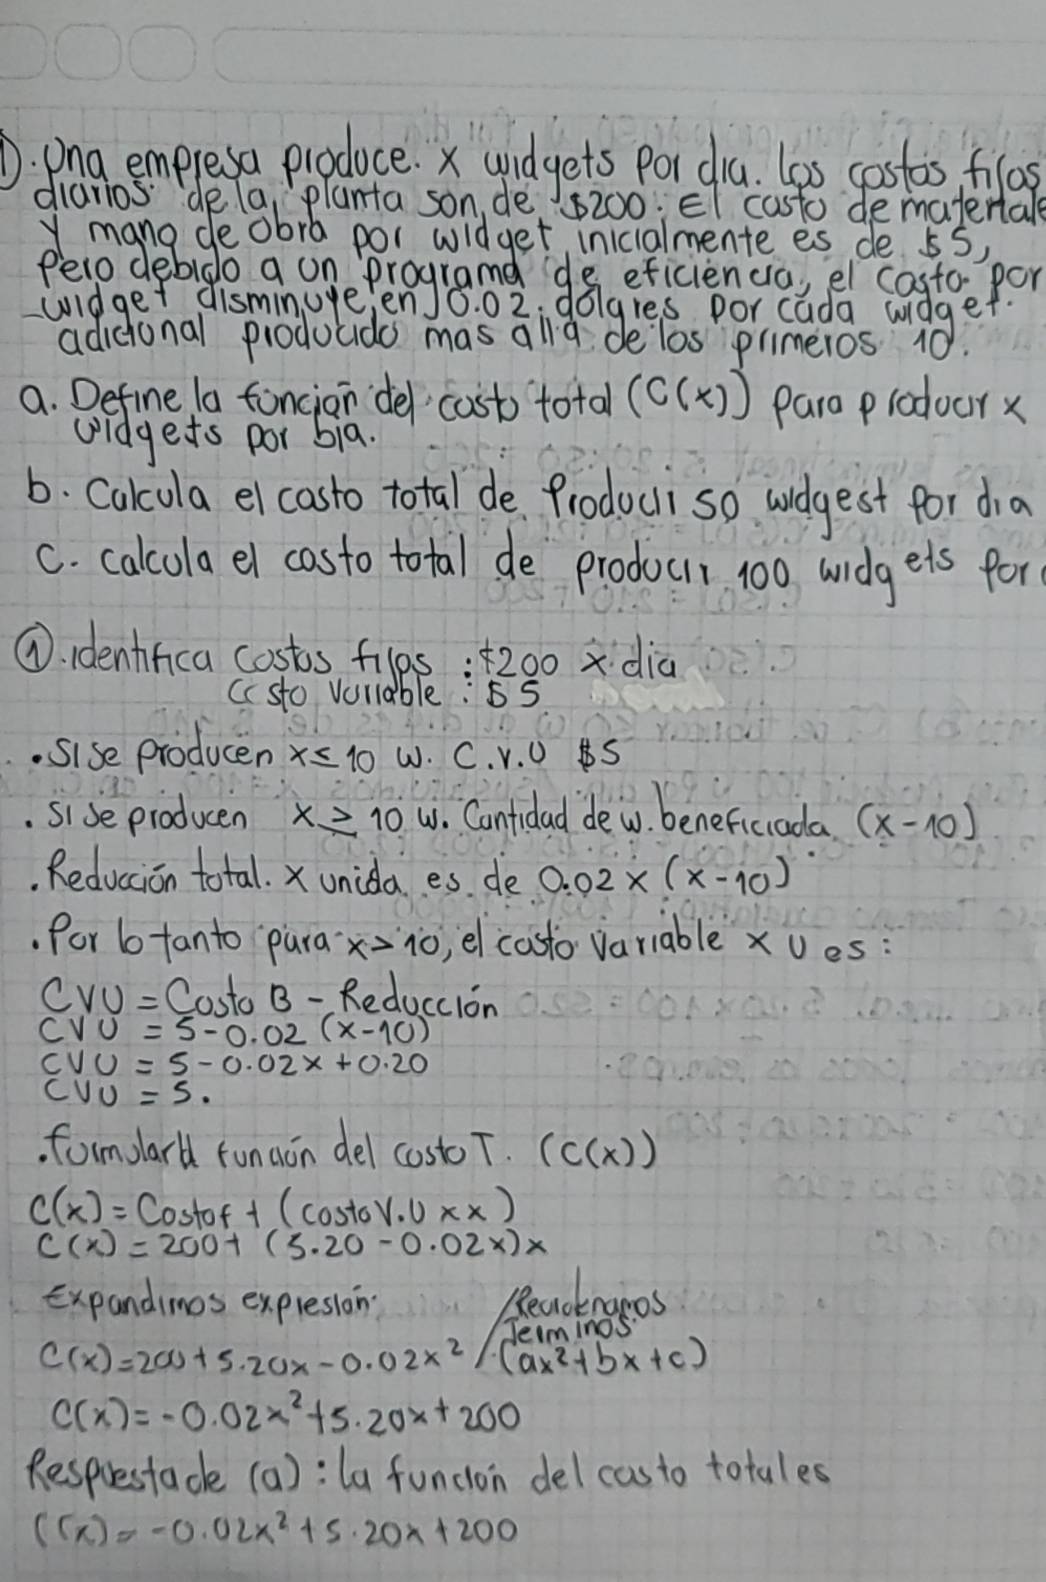 1). Una empresa produce. x widgets por dia. los costos fijos
diarios de la planta son de $200. El costo de materiale
y mano de obra por widget inicialmente es de $5,
Pero debido a un programa de eficiencia, el costo por
widget disminuye en 0.02 dolares por cada widget
adicional producido mas alla de los primeros 10.
a. Define la función del costo total (C(x)) para producir x
widgets por bia.
b. Calcula el costo total de Produci 50 widgest por dia
C. calcula el costo total de producir 100 widgets por
①. identifica costos fijos : $200 x dia
Costo variable : $5
. Si se producen x ≤ 10 w. C.V.U $5
. si se producen x ≥ 10 w. Cantidad de w. beneficiada (x-10)
. Reducción total. x unida es de 0.02 x (x-10)
. Por lo tanto para x > 10, el costo variable x U es:
CVU = Costo B - Reducción
CVU = 5-0.02 (x-10)
CVU = 5-0.02x+0.20
CVU = 5.
. formular la función del costo T. (C(x))
C(x) = Costo f + (costo V.U x x)
C(x) = 200+ (5.20 - 0.02x)x
Expandimos expresion:
C(x)=200+5.20x-0.02x² / Reordenamos Terminos (ax²+bx+c)
C(x)= -0.02x²+5.20x+200
Respuesta de (a): la función del costo total es
C(x)= -0.02x²+5.20x+200